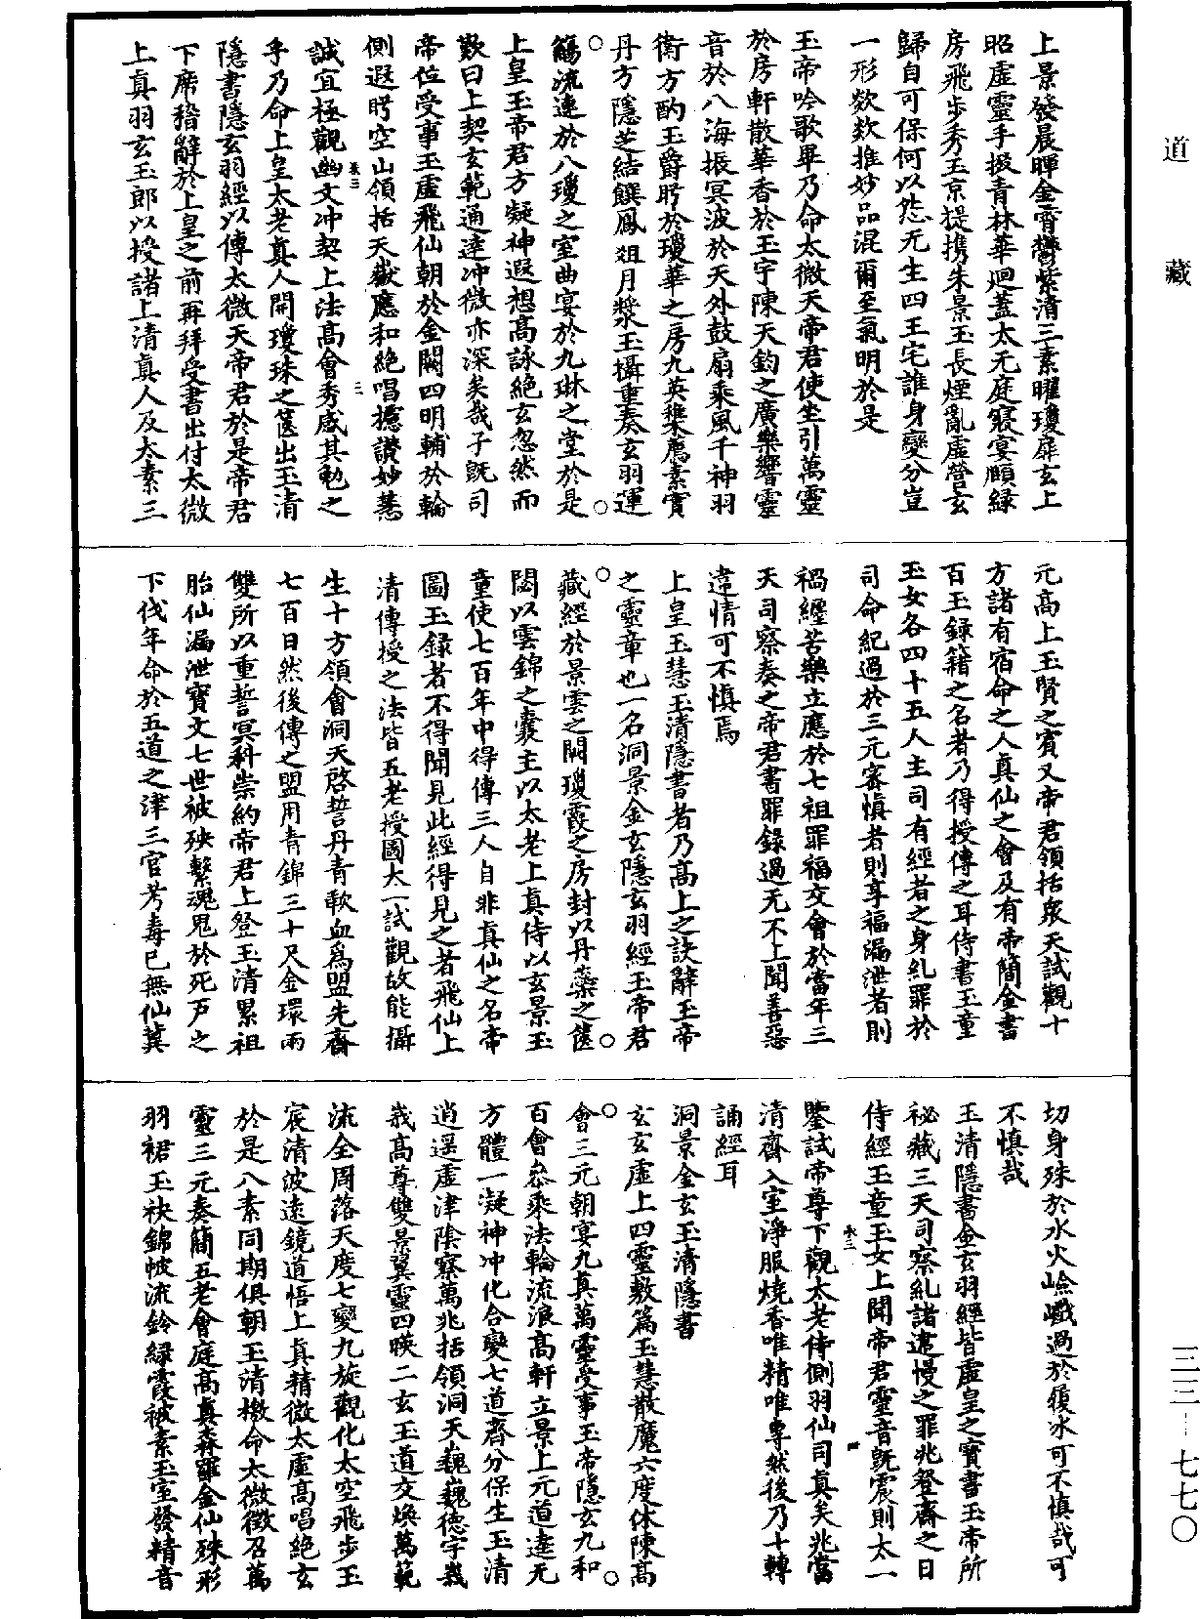 道藏
三三—七七〇
上景發晨暉金霄鬱紫清三素曜瓊扉玄上
昭虛靈手掇青林華廻蓋太无庭寢宴頤緑
房飛步秀玉京提携朱景玉長煙亂虛營玄
歸自可保何以怨无生四王宅誰身變分豈
一形欻欻推妙品混爾至氣明於是
玉帝吟歌畢乃命太微天帝君使坐引萬靈
於房軒散華香於玉宇陳天鈞之廣樂響靈
音於八海振冥波於天外鼓扇乘風千神羽
衛方酌玉爵盻於瓊華之房九英蘂薦素實
丹方隱芝結饌鳳俎月漿玉攝重奏玄羽運
觴流連於八瓊之室曲宴於九琳之堂於是
上皇玉帝君方凝神遐想高詠絶玄忽然而
歎曰上契玄範通達冲微亦深矣哉子旣司
帝位受事玉虛飛仙朝於金闕四明輔於輪
側遐眄空山領括天嶽應和絶唱摅讃妙慧
誠宜極觀幽文冲契上法高會秀感其勉之
乎乃命上皇太老真人開瓊珠之篋出玉清
隱書隱玄羽經以傳太微天帝君於是帝君
下席稽辭於上皇之前再拜受書出付太微
上真羽玄玉郎以授諸上清真人及太素三
元高上玉賢之賓又帝君領括衆天試觀十
方諸有宿命之人真仙之會及有帝簡金書
百玉録籍之名者乃得授傳之耳侍書玉童
玉女各四十五人主司有經者之身糺罪於
司命紀過於三元審慎者則享福漏泄者則
禍纏苦樂立應於七祖罪福交會於當年三
天司察奏之帝君書罪錄過无不上聞善惡
違情可不慎焉
上皇玉慧玉清隱書者乃高上之訣辭玉帝
之靈章也一名洞景金玄隱玄羽經玉帝君
藏經於景雲之闕瓊霞之房封以丹蘂之篋
閟以雲錦之囊主以太老上真侍以玄景玉
童使七百年中得傳三人自非真仙之名帝
圖玉錄者不得聞見此經得見之者飛仙上
清傳授之法皆五老授圖太一試觀故能攝
生十方領會洞天啓誓丹青歃血爲盟先齋
七百日然後傳之盟用青錦三十尺金環兩
雙所以重誓冥科崇約帝君上登玉清累祖
胎仙漏泄寶文七世被殃繫魂鬼於死戶之
下伐年命於五道之津三官考毒已無仙冀
切身殊於水火嶮巇過於履冰可不慎哉可
不慎哉
玉清隱書金玄羽經皆虛皇之寶書玉帝所
秘藏三天司察糺諸違慢之罪兆登齋之日
侍經玉童玉女上聞帝君靈音旣震則太一
鑒試帝尊下觀太老侍側羽仙司真矣兆當
清齋入室淨服燒香唯精唯專然後乃十轉
誦經耳
洞景金玄玉清隱書
玄玄虛上四靈敷篇玉慧散魔六度休陳高
會三元朝宴九真萬靈受事玉帝隱玄九和
百會叅乘法輪流浪高軒立景上元道達无
方體一凝神冲化合變七道齊分保生玉清
逍遥虛津陰察萬兆括領洞天巍巍德宇峩
峩高尊雙景翼靈四暎二玄玉道交煥萬範
流全周落天度七變九旋觀化太空飛步玉
宸清波遠鏡道悟上真精微太虛高唱絶玄
於是八素同期俱朝玉清檄命太微徵召萬
靈三元奏簡五老會庭高真森羅金仙殊形
羽裙玉袂錦帔流鈴緑霞被素玉室發精音